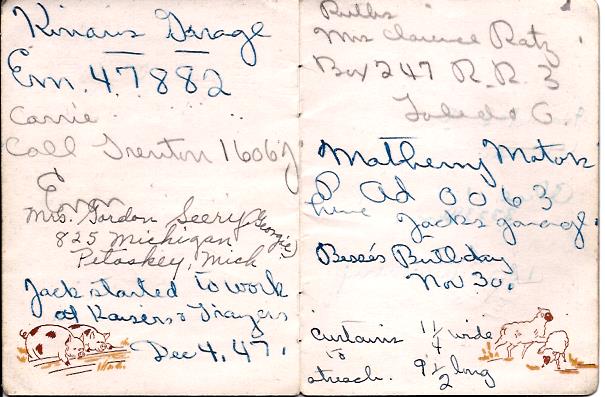 Kinaus Garage
Em. 47882
Carrie
Call Trenton 1606J
Mrs. Gordon Seery (Georgie)
825 Michigan
Petoskey, Mich
Jack started to work
at Kaisers & Frazers
Dec 4, 47.
Mrs Clarence Ratz
Box 247 R.R. 3
Toledo O.
Matheny Motors
P Ad 0063
Jacks garage.
Besse's Birthday
Nov 30.
curtains 1 1/4 wide
to
streach. 9 1/2 long